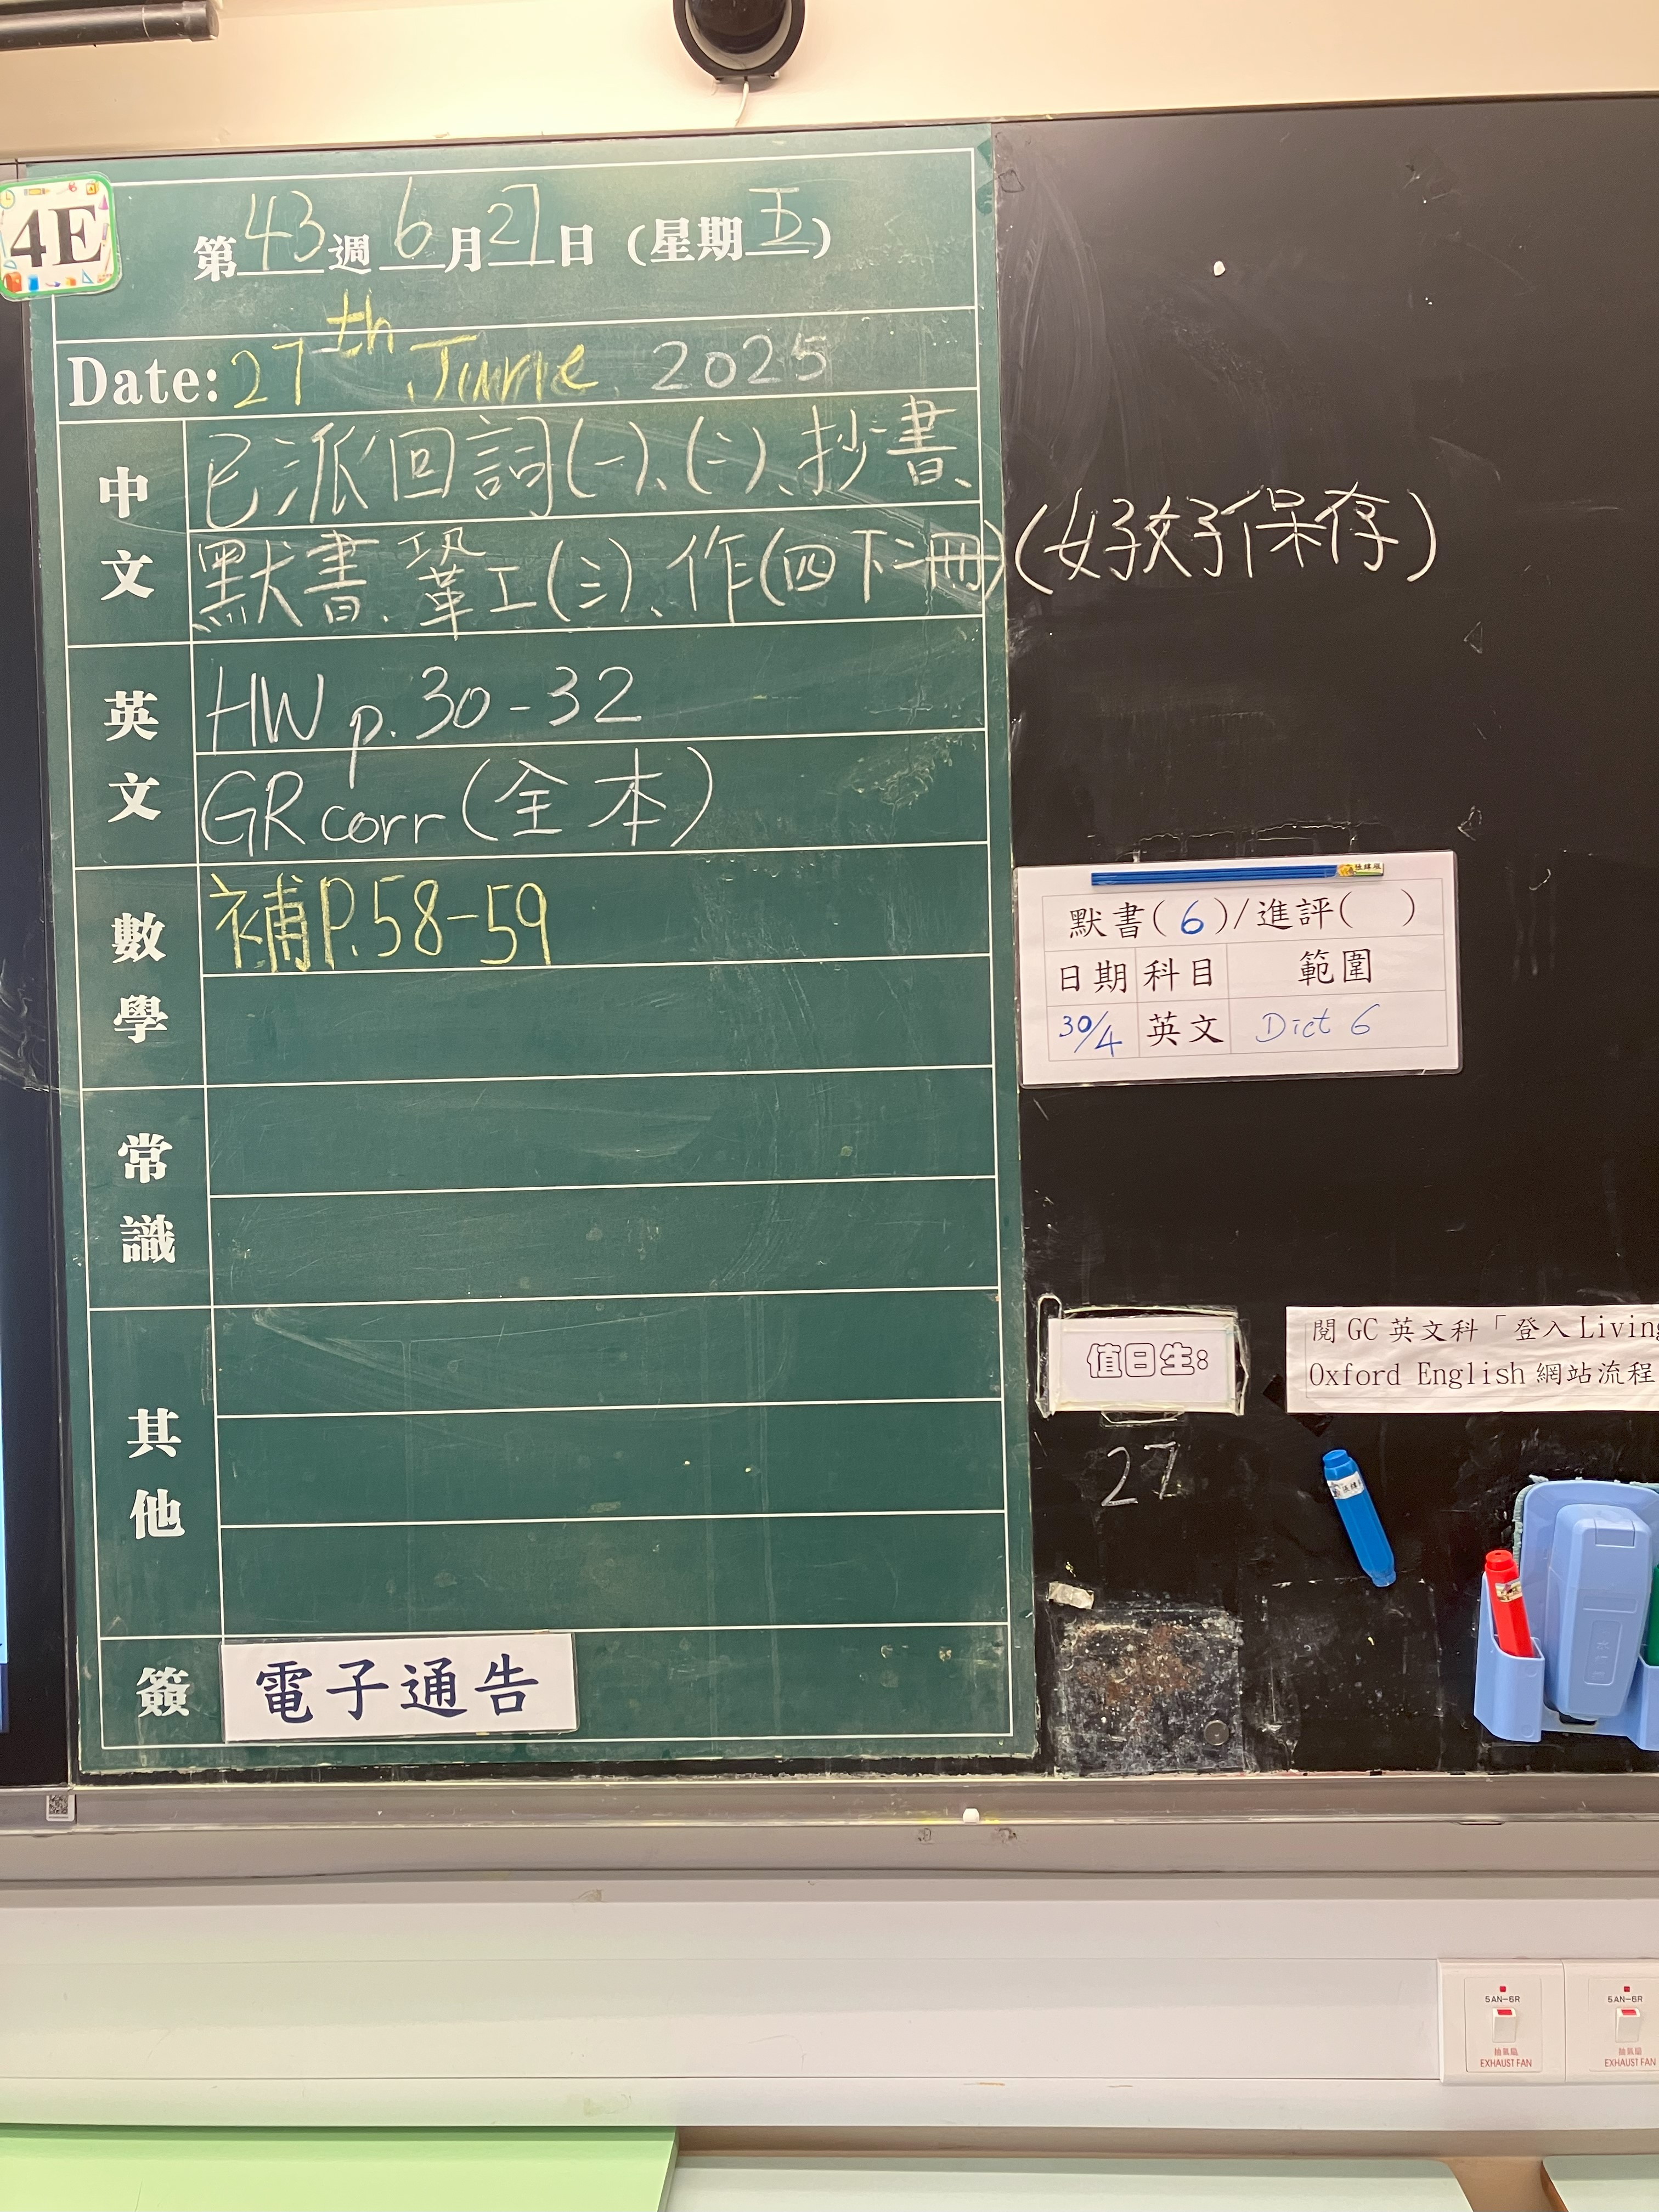 4E
第43週6月27日(星期五)
Date: 27th June 2025
中文
已派回詞(一)、(二)、抄書、
默書、鞏工(三)、作(四下二冊)(好好保存)
英文
HW p.30-32
GR corr(全本)
數學
補P.58-59
常識
其他
簽
電子通告
默書(6)/進評( )
日期 科目 範圍
30/4 英文 Dict 6
值日生:
27
閱 GC 英文科「登入 Living
Oxford English 網站流程
5AN-6R
抽氣扇
EXHAUST FAN
5AN-6R
抽氣扇
EXHAUST FAN